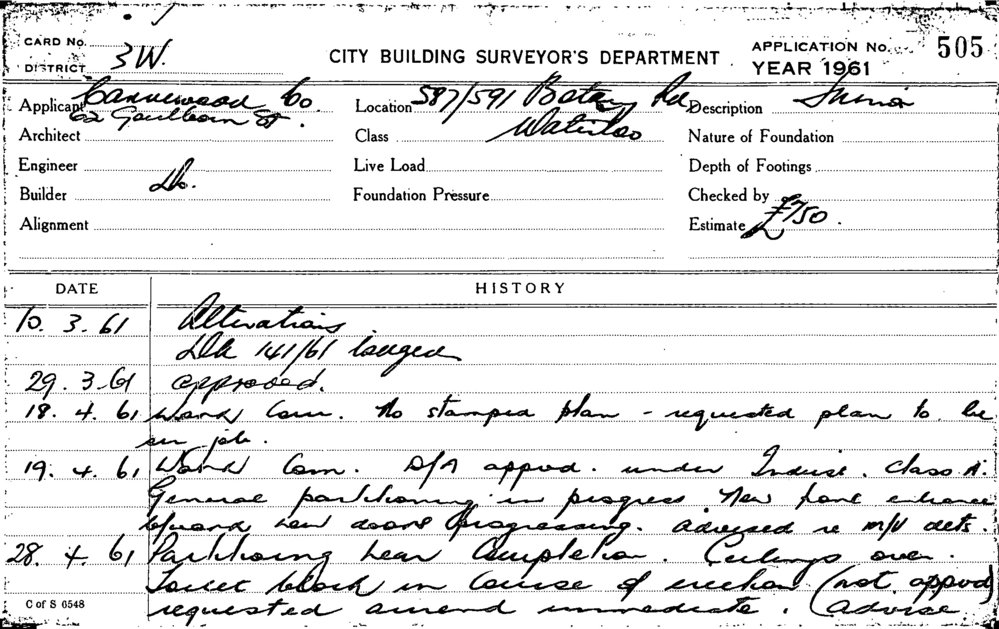 CARD No.
DISTRICT 3W.
CITY BUILDING SURVEYOR'S DEPARTMENT
APPLICATION No. 505
YEAR 1961
Applicant Co
62 Goulburn St.
Location 587/591 Botany Rd,
Waterloo
Description
Architect
Class
Nature of Foundation
Engineer
Live Load
Depth of Footings
Builder Do.
Foundation Pressure
Checked by
Alignment
Estimate £750.
DATE HISTORY
10. 3. 61 Alterations
DA 141/61 lodged
29. 3. 61 approved.
18. 4. 61 Work Com. No stamped plan - requested plan to be
on job.
19. 4. 61 Work Com. D/A appvd. under Indust. Class A.
General partitioning in progress New front entrance
new doors progressing. advised re m/v dets.
28. 4. 61 Partitioning near Completion. Ceilings over.
Toilet block in course of erection (not appvd)
requested amend immediate. (advise
C of S 6548